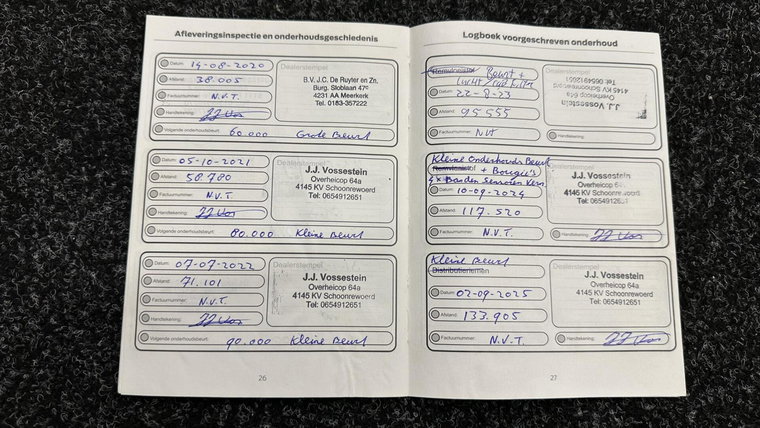 Afleveringsinspectie en onderhoudsgeschiedenis
Datum: 14-08-2020
Afstand: 38.005
Factuurnummer: N.V.T.
Handtekening:
Volgende onderhoudsbeurt: 60.000 Grote Beurt
Dealerstempel
B.V. J.C. De Ruyter en Zn.
Burg. Sloblaan 47c
4231 AA Meerkerk
Tel. 0183-357222
Datum: 05-10-2021
Afstand: 58.780
Factuurnummer: N.V.T.
Handtekening:
Volgende onderhoudsbeurt: 80.000 Kleine Beurt
Dealerstempel
J.J. Vossestein
Overheicop 64a
4145 KV Schoonrewoerd
Tel: 0654912651
Datum: 07-07-2022
Afstand: 71.101
Factuurnummer: N.V.T.
Handtekening:
Volgende onderhoudsbeurt: 90.000 Kleine Beurt
Dealerstempel
J.J. Vossestein
Overheicop 64a
4145 KV Schoonrewoerd
Tel: 0654912651
26
Logboek voorgeschreven onderhoud
Beurt +
Remvloeistof
Datum: 22-8-23
Afstand: 95555
Factuurnummer: NVT
Handtekening:
Dealerstempel
J.J. Vossestein
Overheicop 64a
4145 KV Schoonrewoerd
Tel: 0654912651
Kleine Onderhouds Beurt
Remvloeistof + Bougie's
4x Banden Sensoren Vern
Datum: 10-09-2024
Afstand: 117.520
Factuurnummer: N.V.T.
Handtekening:
Dealerstempel
J.J. Vossestein
Overheicop 64a
4145 KV Schoonrewoerd
Tel: 065491265
Kleine Beurt
Distributieriemen
Datum: 02-09-2025
Afstand: 133.905
Factuurnummer: N.V.T.
Handtekening:
Dealerstempel
J.J. Vossestein
Overheicop 64a
4145 KV Schoonrewoerd
Tel: 0654912651
27